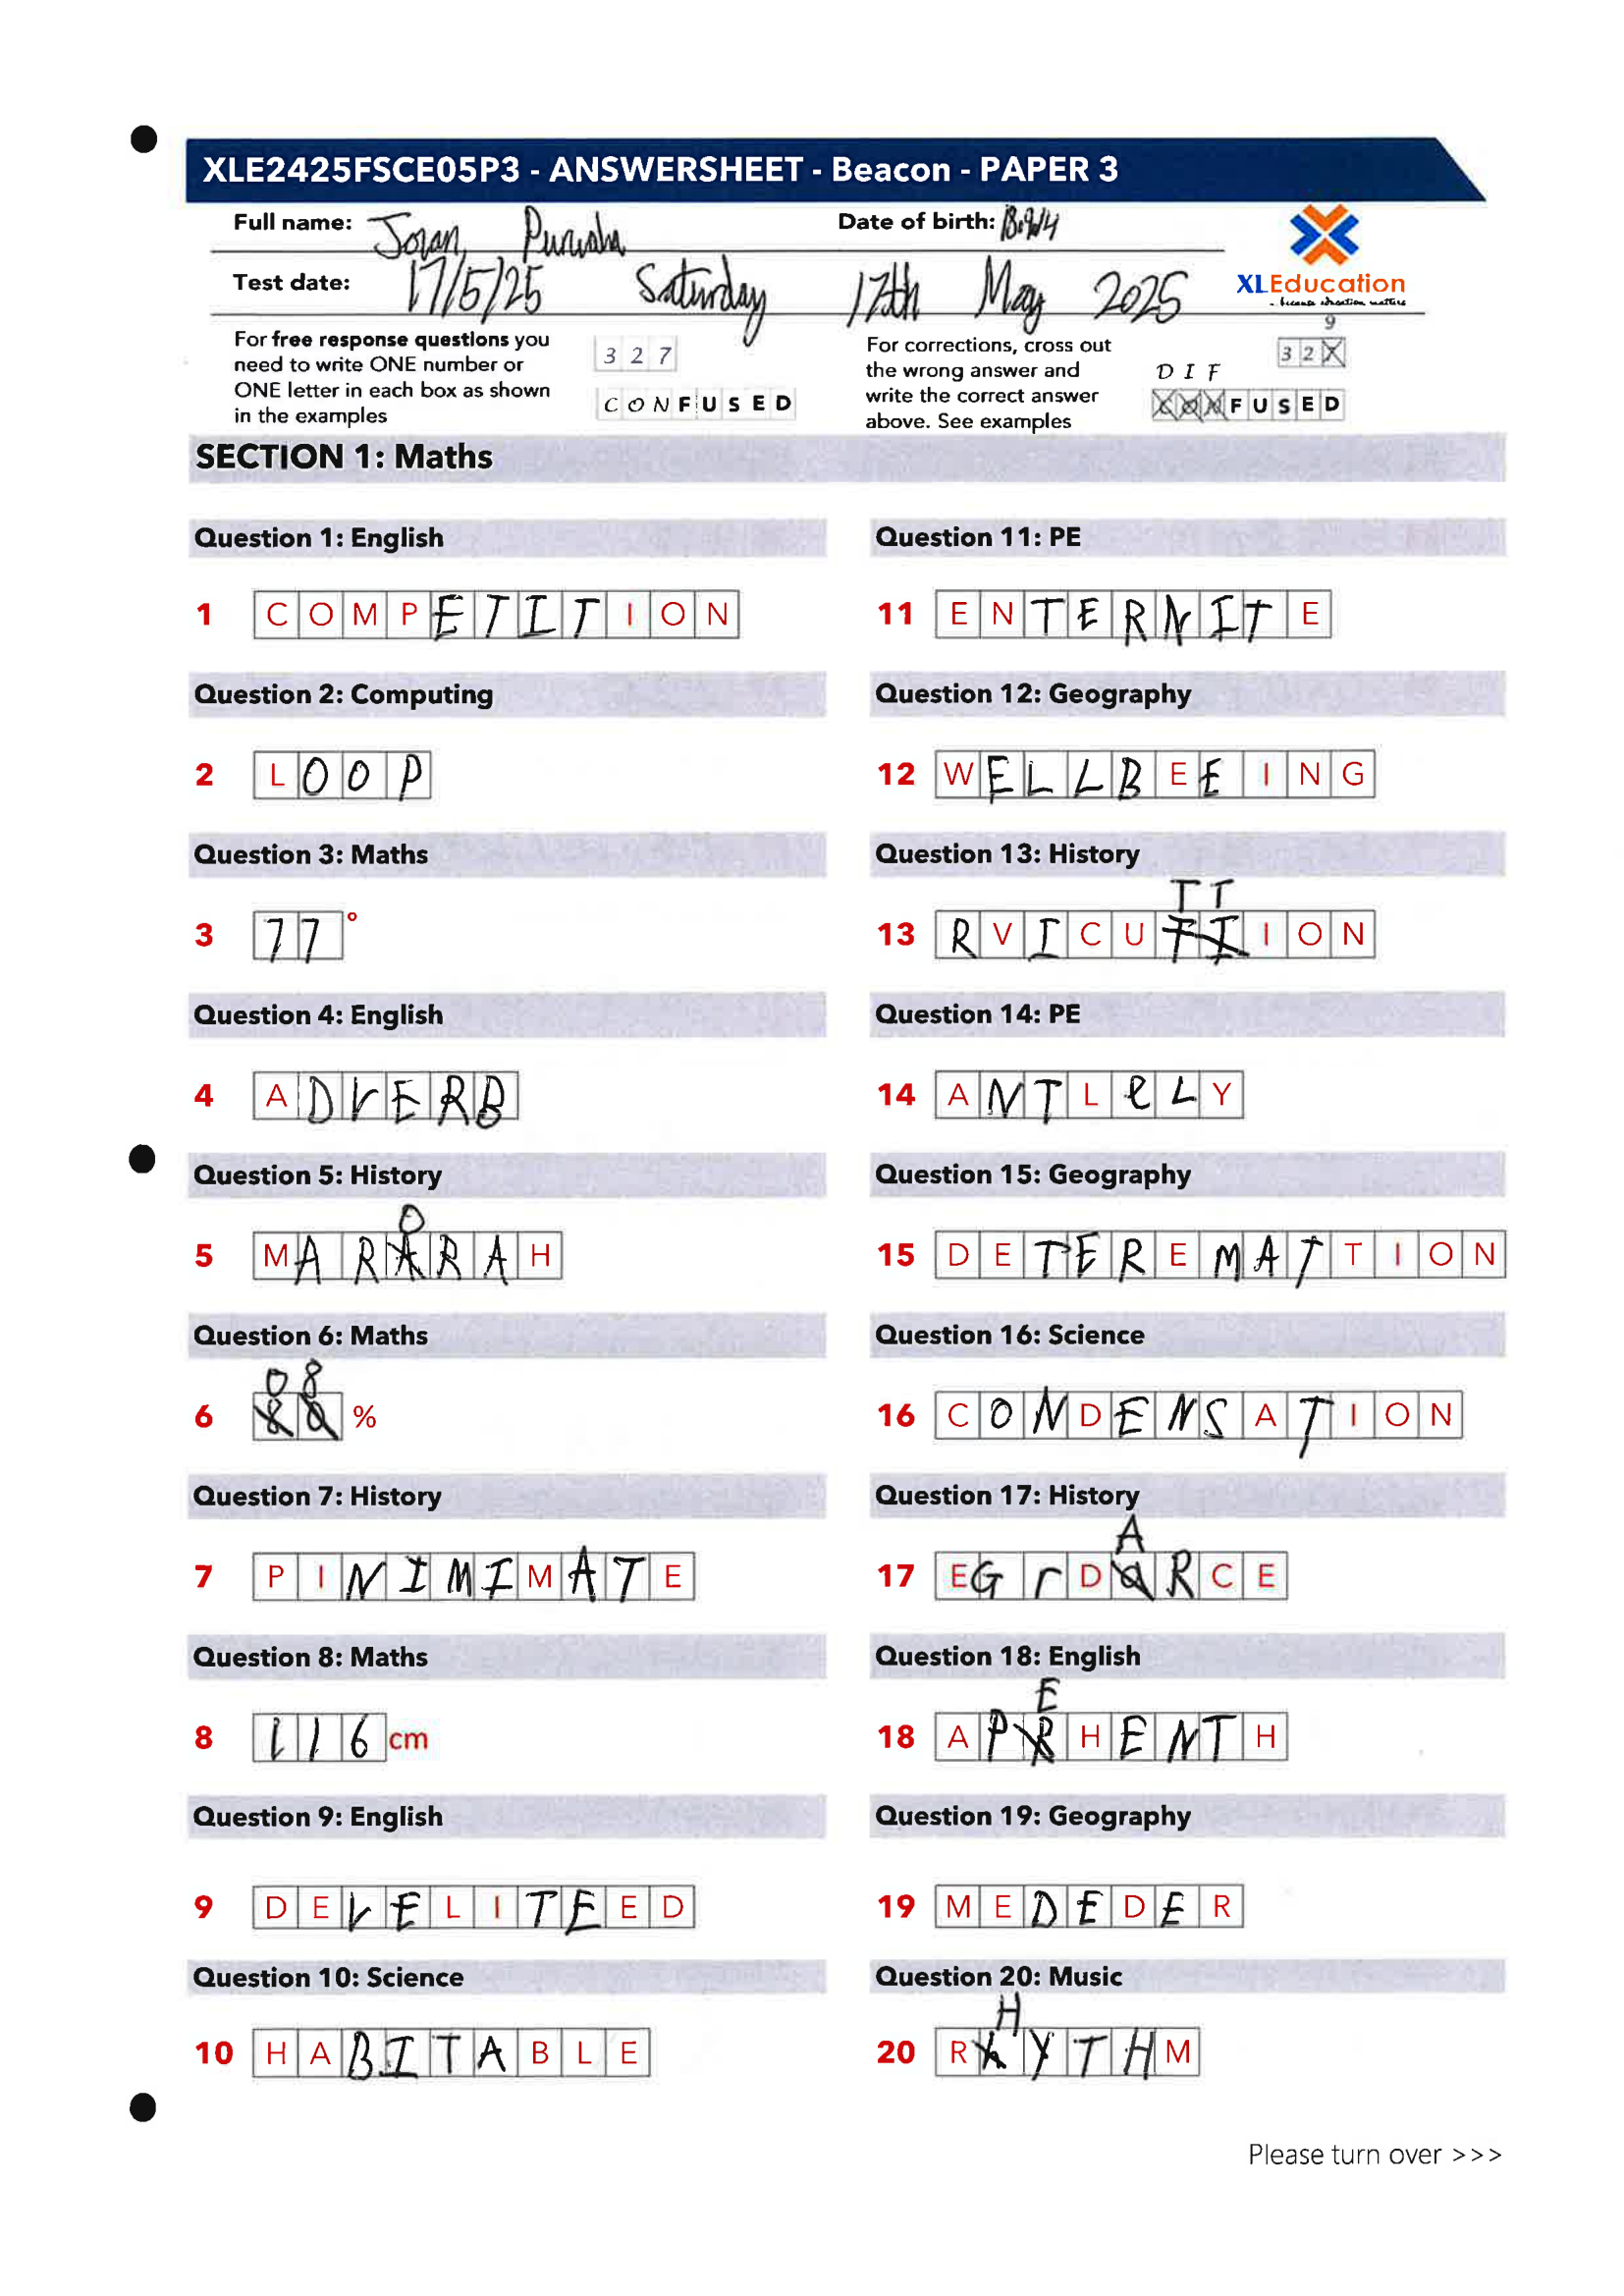 XLE2425FSCE05P3 - ANSWERSHEET - Beacon - PAPER 3
Full name:
Date of birth:
Test date: 17/5/25 Saturday 17th May 2025
XLEducation
- because education matters
For free response questions you
need to write ONE number or
ONE letter in each box as shown
in the examples
3 2 7
C O N F U S E D
For corrections, cross out
the wrong answer and
write the correct answer
above. See examples
9
3 2 X
D I F
F U S E D
SECTION 1: Maths
Question 1: English
1 C O M P E T I T I O N
Question 2: Computing
2 L O O P
Question 3: Maths
3 7 7 °
Question 4: English
4 A D V E R B
Question 5: History
O
5 M A R A R A H
Question 6: Maths
0 8
6 8 0 %
Question 7: History
7 P I N I M I M A T E
Question 8: Maths
8 1 1 6 cm
Question 9: English
9 D E V E L I T E E D
Question 10: Science
10 H A B I T A B L E
Question 11: PE
11 E N T E R N I T E
Question 12: Geography
12 W E L L B E E I N G
Question 13: History
T T
13 R V I C U T I I O N
Question 14: PE
14 A N T L e L Y
Question 15: Geography
15 D E T E R E M A T T I O N
Question 16: Science
16 C O N D E N S A T I O N
Question 17: History
A
17 E G r D a R C E
Question 18: English
E
18 A P R H E N T H
Question 19: Geography
19 M E D E D E R
Question 20: Music
H
20 R h Y T H M
Please turn over >>>